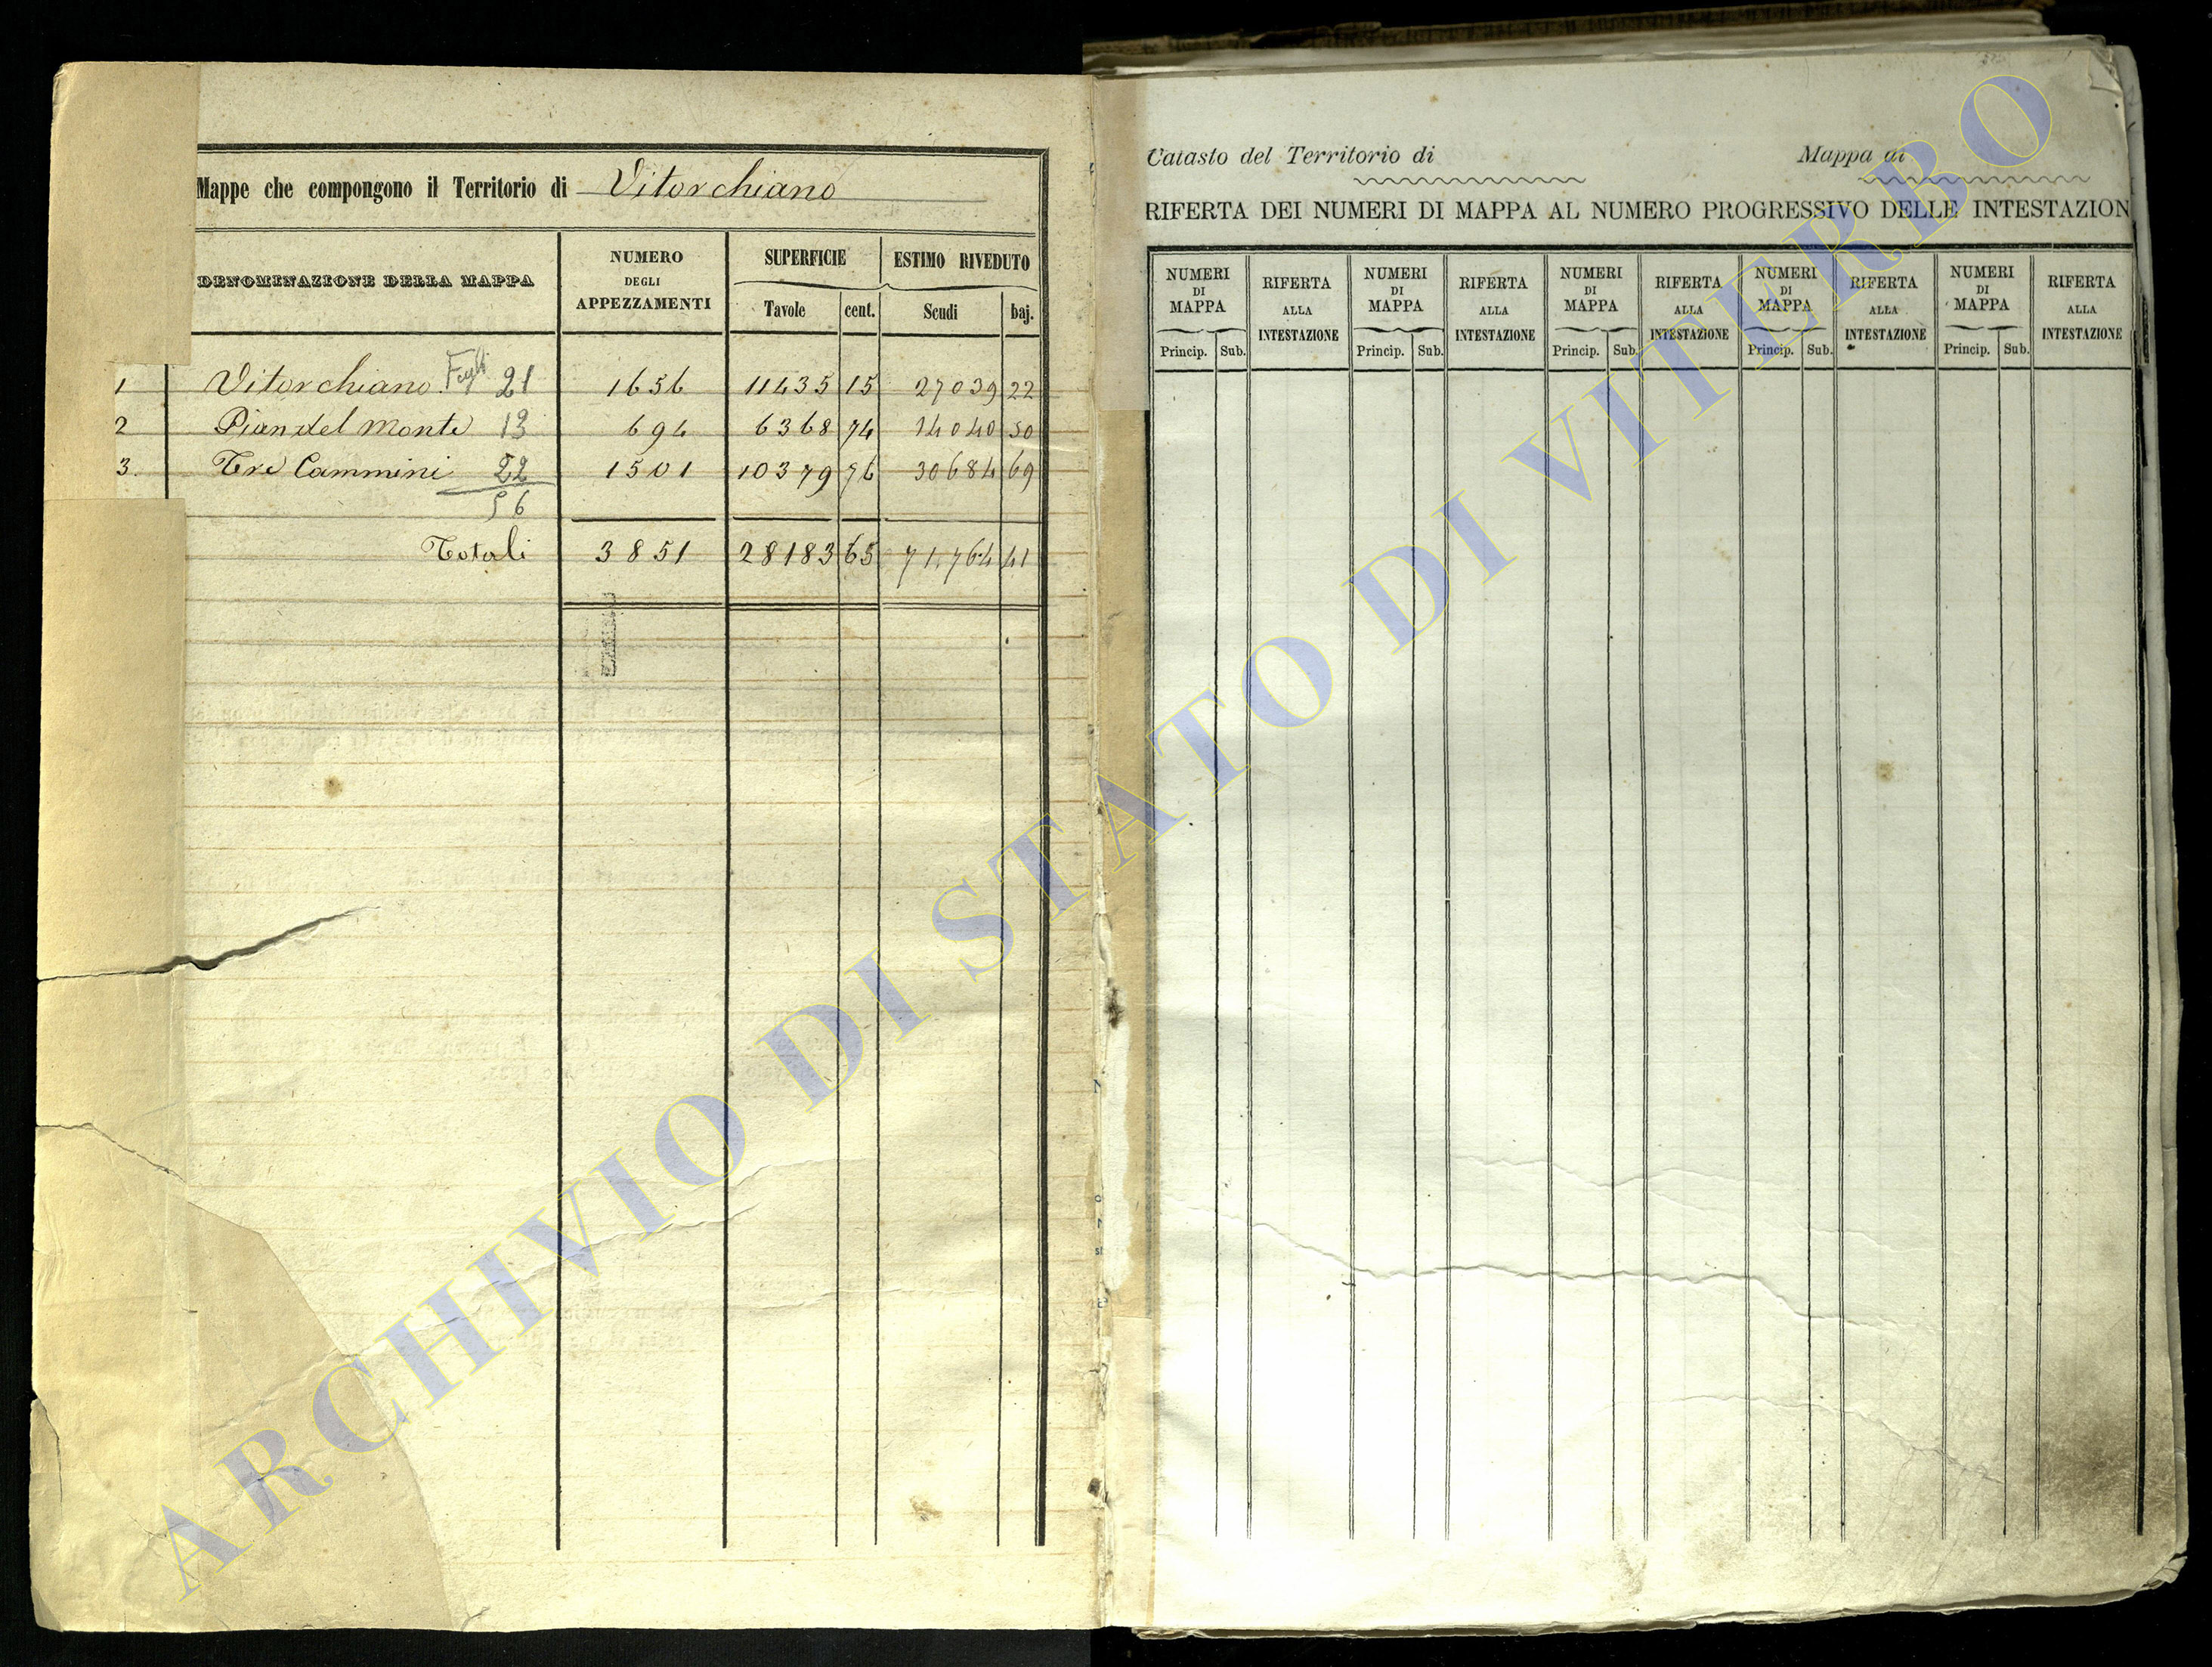 Mappe che compongono il Territorio di Vitorchiano
DENOMINAZIONE DELLA MAPPA
NUMERO DEGLI APPEZZAMENTI
SUPERFICIE
Tavole cent.
ESTIMO RIVEDUTO
Scudi baj.
1 Vitorchiano Fogli 21 1656 11435 15 27039 22
2 Pian del Monte 13 694 6368 74 14040 50
3 Tre Cammini 22 1501 10379 76 30684 69
56
Totali 3851 28183 65 71.764 41
Catasto del Territorio di Mappa di
RIFERTA DEI NUMERI DI MAPPA AL NUMERO PROGRESSIVO DELLE INTESTAZION
NUMERI DI MAPPA RIFERTA ALLA INTESTAZIONE NUMERI DI MAPPA RIFERTA ALLA INTESTAZIONE NUMERI DI MAPPA RIFERTA ALLA INTESTAZIONE NUMERI DI MAPPA RIFERTA ALLA INTESTAZIONE NUMERI DI MAPPA RIFERTA ALLA INTESTAZIONE
Princip. Sub. Princip. Sub. Princip. Sub. Princip. Sub. Princip. Sub.
ARCHIVIO DI STATO DI VITERBO